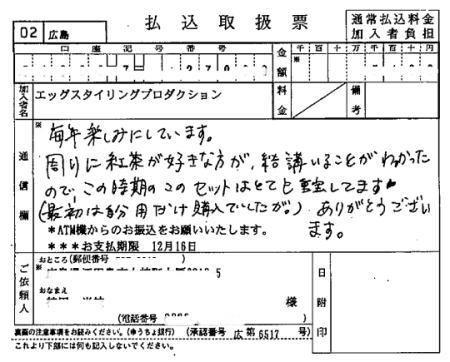 02 広島
払込取扱票
通常払込料金
加入者負担
口座記号番号
金額
千 百 十 万 千 百 十 円
加入者名
エッグスタイリングプロダクション
料金
備考
通信欄
毎年楽しみにしています。
周りに紅茶が好きな方が、結講いることがわかった
ので、この時期のこのセットはとても重宝してます
(最初は自分用だけ購入でしたが。) ありがとうござい
ます。
*ATM機からのお振込をお願いいたします。
***お支払期限 12月16日
ご依頼人
おところ(郵便番号
おなまえ
様
(電話番号
日附印
裏面の注意事項をお読みください。(ゆうちょ銀行) (承認番号 広第6517号)
これより下部には何も記入しないでください。